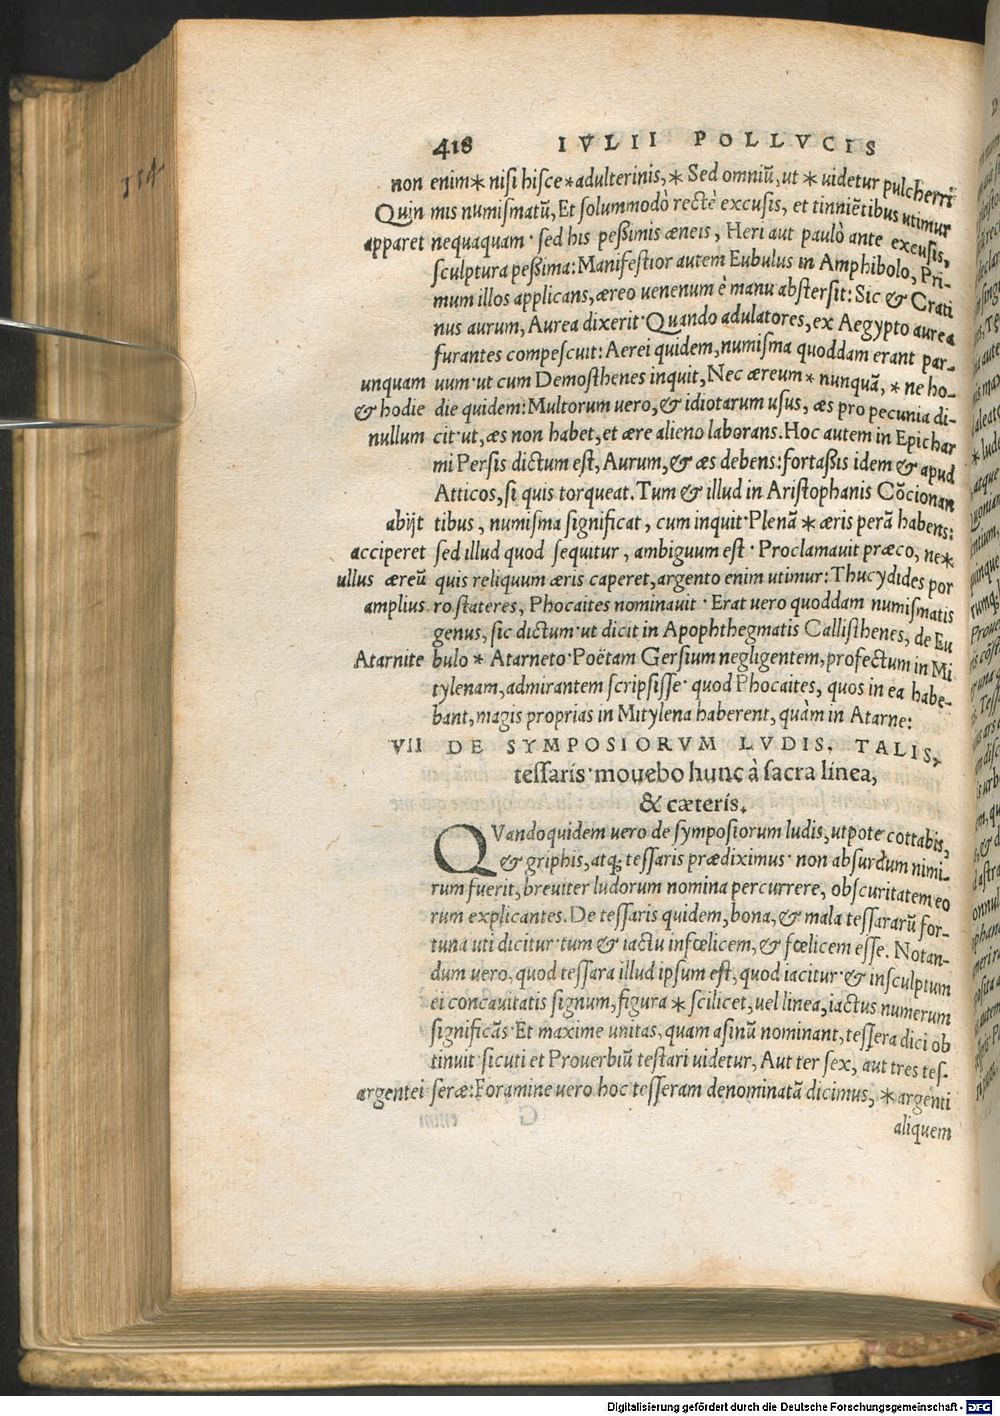 418 IVLII POLLVCIS
114
non enim* nisi hisce*adulterinis,* Sed omniũ, ut * uidetur pulcherri
Quin mis numismatũ, Et solummodò rectè excusis, et tinniẽtibus utimur
apparet nequaquam· sed his peßimis æneis, Heri aut paulò ante excusis,
sculptura peßima: Manifestior autem Eubulus in Amphibolo, Pri-
mum illos applicans, æreo uenenum è manu abstersit: Sic & Crati
nus aurum, Aurea dixerit· Quando adulatores, ex Aegypto aurea
furantes compescuit: Aerei quidem, numisma quoddam erant par-
unquam uum· ut cum Demosthenes inquit, Nec æreum * nunquã, * ne ho-
& hodie die quidem: Multorum uero, & idiotarum usus, æs pro pecunia di-
nullum cit· ut, æs non habet, et ære alieno laborans. Hoc autem in Epichar
mi Persis dictum est, Aurum, & æs debens: fortaßis idem & apud
Atticos, si quis torqueat. Tum & illud in Aristophanis Cõcionan
abijt tibus, numisma significat, cum inquit· Plenã * æris perã habens:
acciperet sed illud quod sequitur, ambiguum est· Proclamauit præco, ne*
ullus æreũ quis reliquum æris caperet, argento enim utimur: Thucydides por
amplius ro stateres, Phocaites nominauit· Erat uero quoddam numismatis
genus, sic dictum· ut dicit in Apophthegmatis Callisthenes, de Eu
Atarnite bulo * Atarneto· Poëtam Gersium negligentem, profectum in Mi
tylenam, admirantem scripsisse· quod Phocaites, quos in ea habe-
bant, magis proprias in Mitylena haberent, quàm in Atarne:
VII DE SYMPOSIORVM LVDIS, TALIS,
tessaris· mouebo hunc à sacra linea,
& cæteris.
QVandoquidem uero de symposiorum ludis, utpote cottabis,
& griphis, atq; tessaris prædiximus· non absurdum nimi-
rum fuerit, breuiter ludorum nomina percurrere, obscuritatem eo
rum explicantes. De tessaris quidem, bona, & mala tessararũ for-
tuna uti dicitur· tum & iactu infœlicem, & fœlicem esse. Notan-
dum uero, quod tessara illud ipsum est, quod iacitur· & insculptum
ei concauitatis signum, figura * scilicet, uel linea, iactus numerum
significãs· Et maxime unitas, quam asinũ nominant, tessera dici ob
tinuit· sicuti et Prouerbiũ testari uidetur, Aut ter sex, aut tres tes-
argentei seræ: Foramine uero hoc tesseram denominatã dicimus, * argenti
aliquem
Digitalisierung gefördert durch die Deutsche Forschungsgemeinschaft - DFG